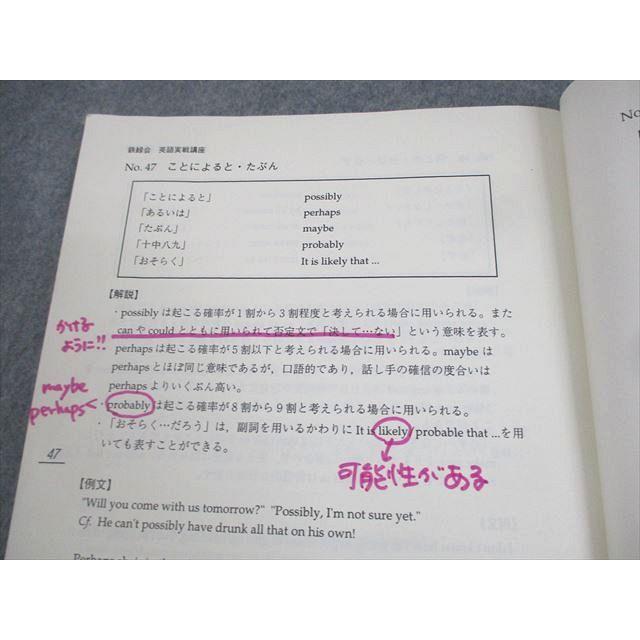 鉄緑会 英語実戦講座
No. 47 ことによると・たぶん
「ことによると」 possibly
「あるいは」 perhaps
「たぶん」 maybe
「十中八九」 probably
「おそらく」 It is likely that ...
【解説】
・possibly は起こる確率が1割から3割程度と考えられる場合に用いられる。また
can や could とともに用いられて否定文で「決して…ない」という意味を表す。
かける
ように!!
perhaps は起こる確率が5割以下と考えられる場合に用いられる。maybe は
perhaps とほぼ同じ意味であるが，口語的であり，話し手の確信の度合いは
perhaps よりいくぶん高い。
maybe
perhaps <
・probably は起こる確率が8割から9割と考えられる場合に用いられる。
・「おそらく…だろう」は，副詞を用いるかわりに It is likely / probable that ...を用
いても表すことができる。
可能性がある
47
【例文】
"Will you come with us tomorrow?" "Possibly, I'm not sure yet."
Cf. He can't possibly have drunk all that on his own!
No